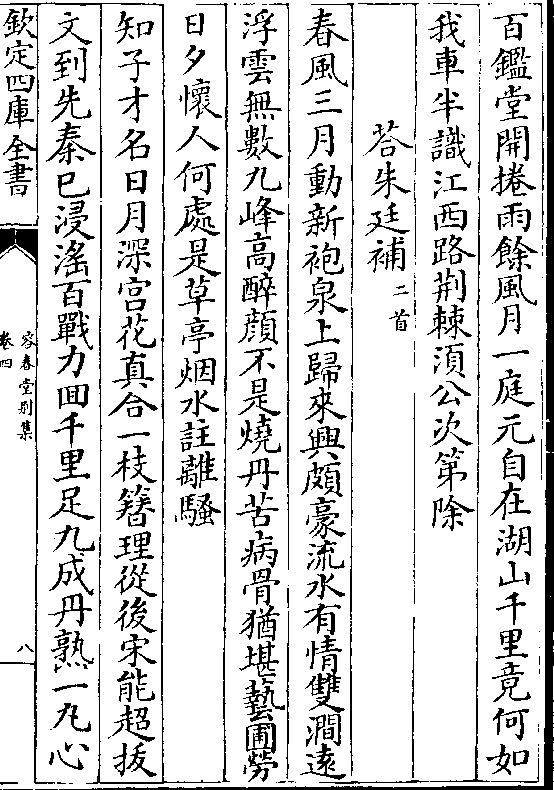 百鑑堂開捲雨餘風月一庭元自在湖山千里竟何如
我車半識江西路荆棘湏公次第除
荅朱廷補二首
春風三月動新袍泉上歸來興頗豪流水有情雙澗逺
浮雲無數九峰高醉顔不是燒丹苦病骨猶堪藝圃勞
日夕懷人何處是草亭烟水註離騷
知子才名日月深宫花真合一枝簮理從後宋能超拔
文到先秦已浸滛百戰力囬千里足九成丹熟一丸心
欽定四庫全書
容春堂别集
卷四
八